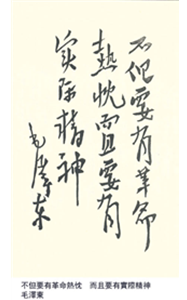 不但要有革命
熱忱而且要有
實际精神
毛澤东
不但要有革命熱忱　而且要有實際精神
毛澤東